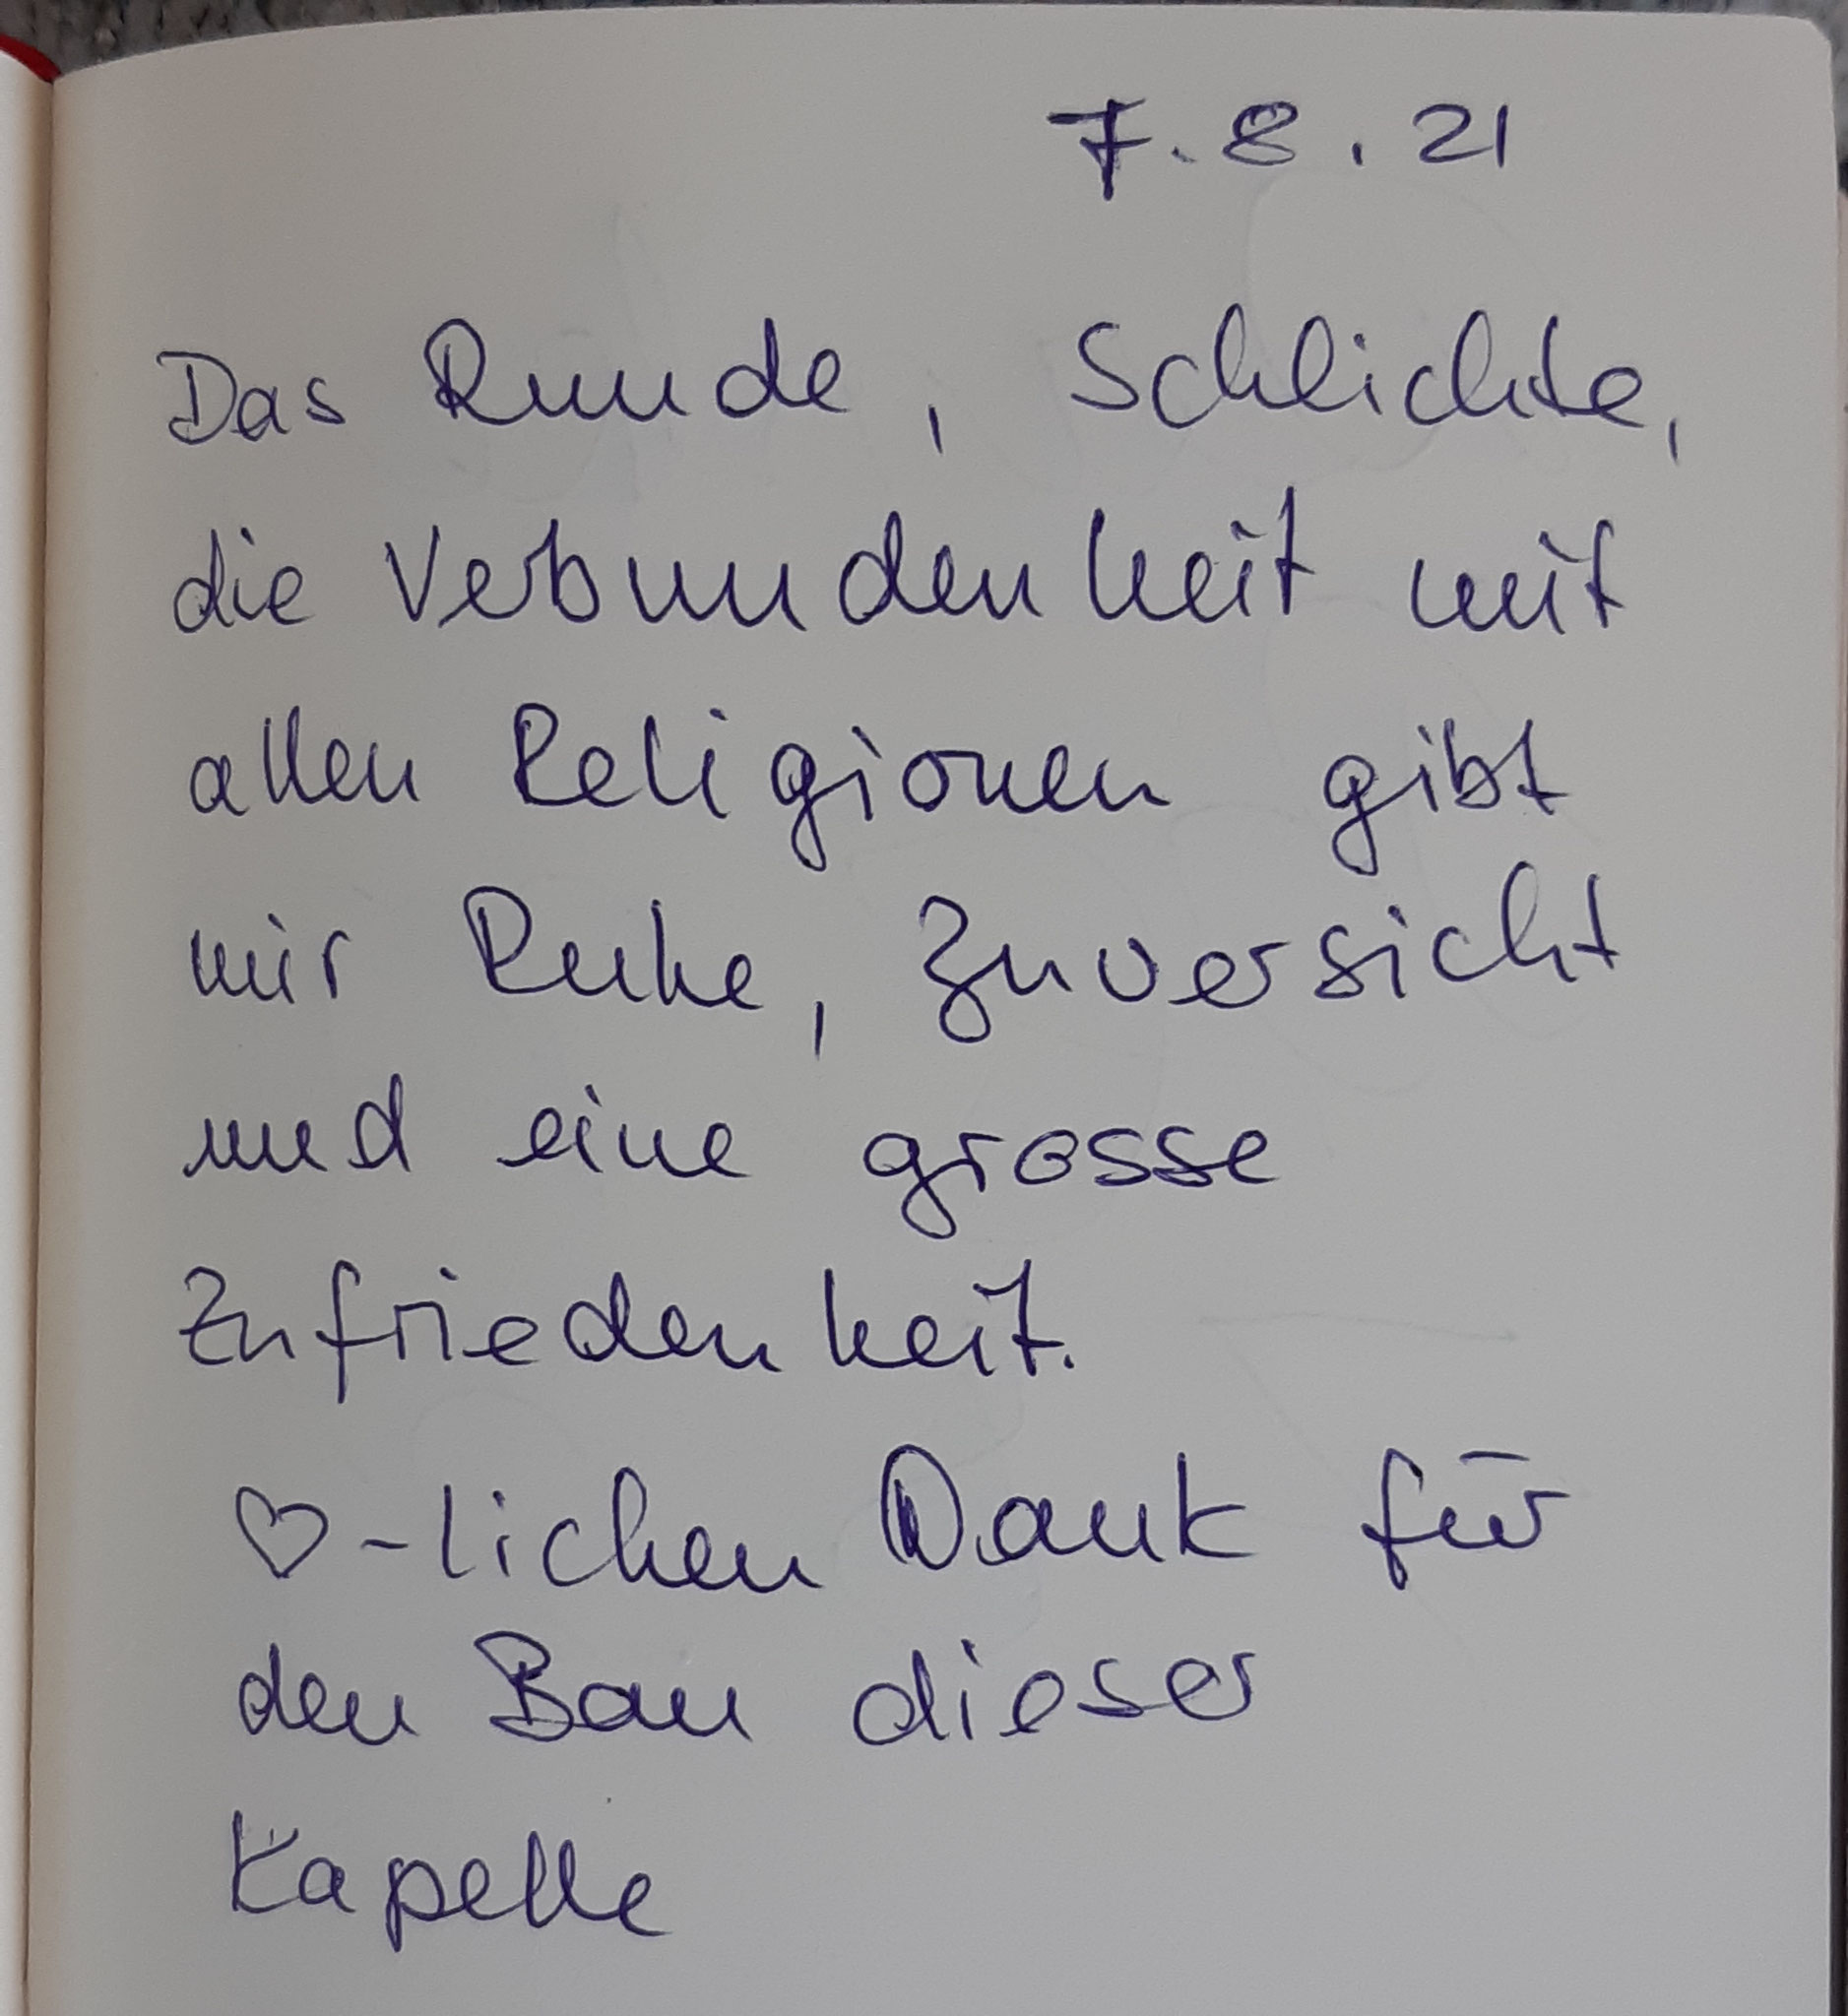 7.8.21
Das Runde, Schlichte,
die Verbundenheit mit
allen Religionen gibt
mir Ruhe, Zuversicht
und eine grosse
Zufriedenheit.
♡-lichen Dank für
den Bau dieser
Kapelle